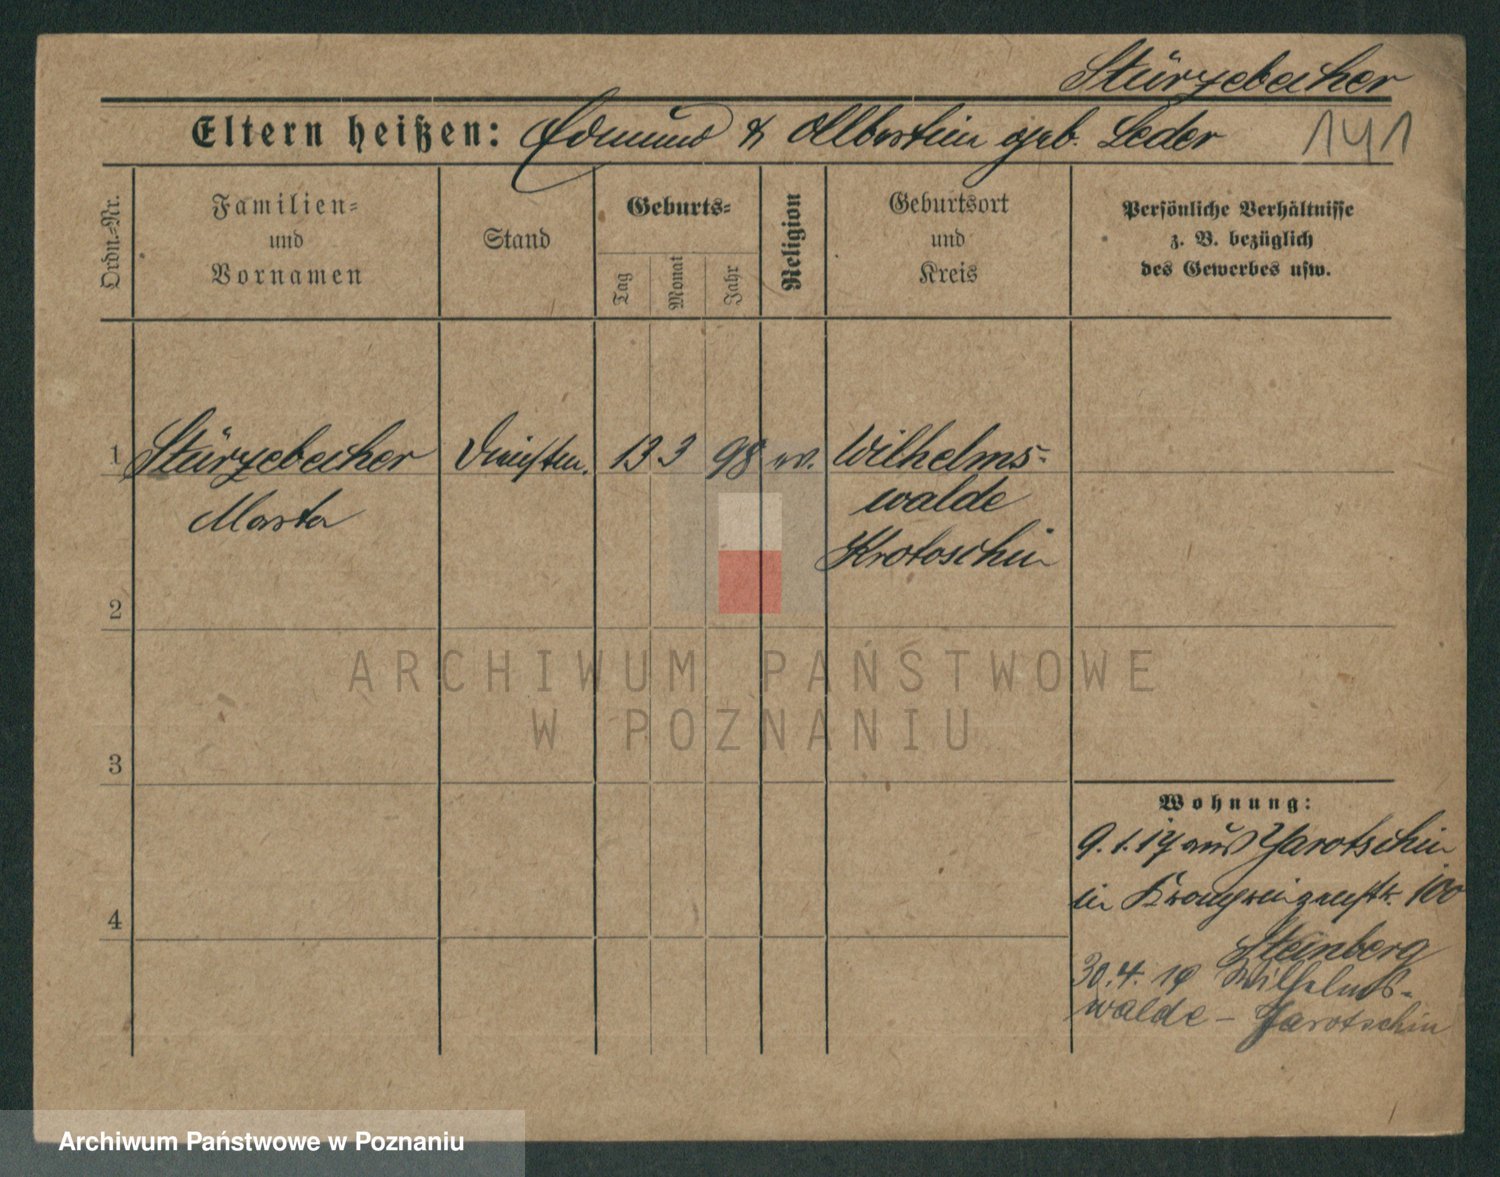 Stürzebecher
Eltern heißen: Edmund & Albertin geb. Leder 141
Ordn.-Nr.
Familien-
und
Vornamen
Stand
Geburts-
Tag
Monat
Jahr
Religion
Geburtsort
und
Kreis
Persönliche Verhältnisse
z. B. bezüglich
des Gewerbes usw.
1 Stürzebecher 13 3 98 ev. Wilhelms-
Marta walde
Krotoschin
2
3
4
Wohnung:
9.1.19 aus Jarotschin
in Kronprinzenstr. 100
Steinberg
30.4.19 Wilhelms-
walde - Jarotschin
ARCHIWUM PAŃSTWOWE
W POZNANIU
Archiwum Państwowe w Poznaniu